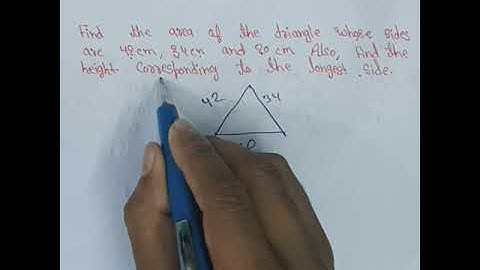 Find the area of the triangle whose sides
are 42 cm, 34 cm and 20 cm Also, find the
height corresponding to the longest side.
42 34